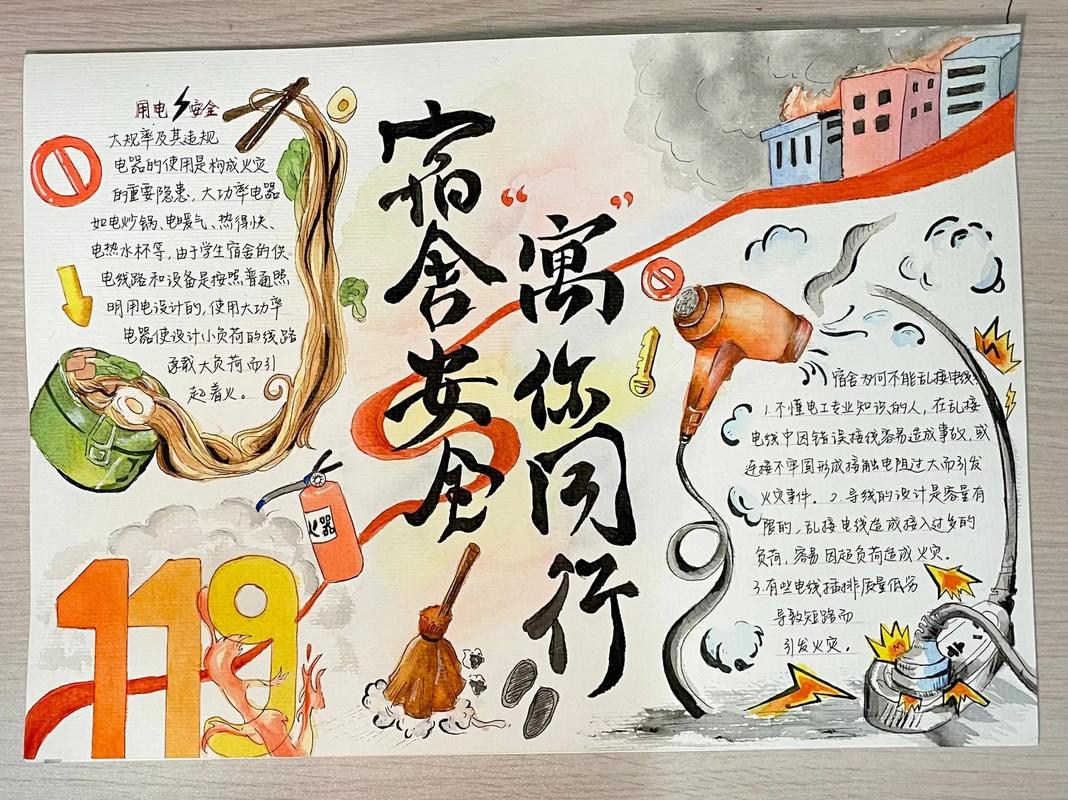 用电安全
大规率及其违规
电器的使用是构成火灾
的重要隐患,大功率电器
如电炒锅、电暖气、热得快、
电热水杯等,由于学生宿舍的供
电线路和设备是按照普通照
明用电设计的,使用大功率
电器使设计小负荷的线路
承载大负荷而引
起着火。
宿舍安全
“寓”你同行
火器
119
宿舍为何不能乱接电线
1.不懂电工专业知识的人,在乱接
电线中因错误接线容易造成事故,或
连接不牢固形成接触电阻过大而引发
火灾事件。2.导线的设计是容量有
限的,乱接电线造成接入过多的
负荷,容易因超负荷造成火灾。
3.有些电线插排质量低劣
导致短路而
引发火灾。